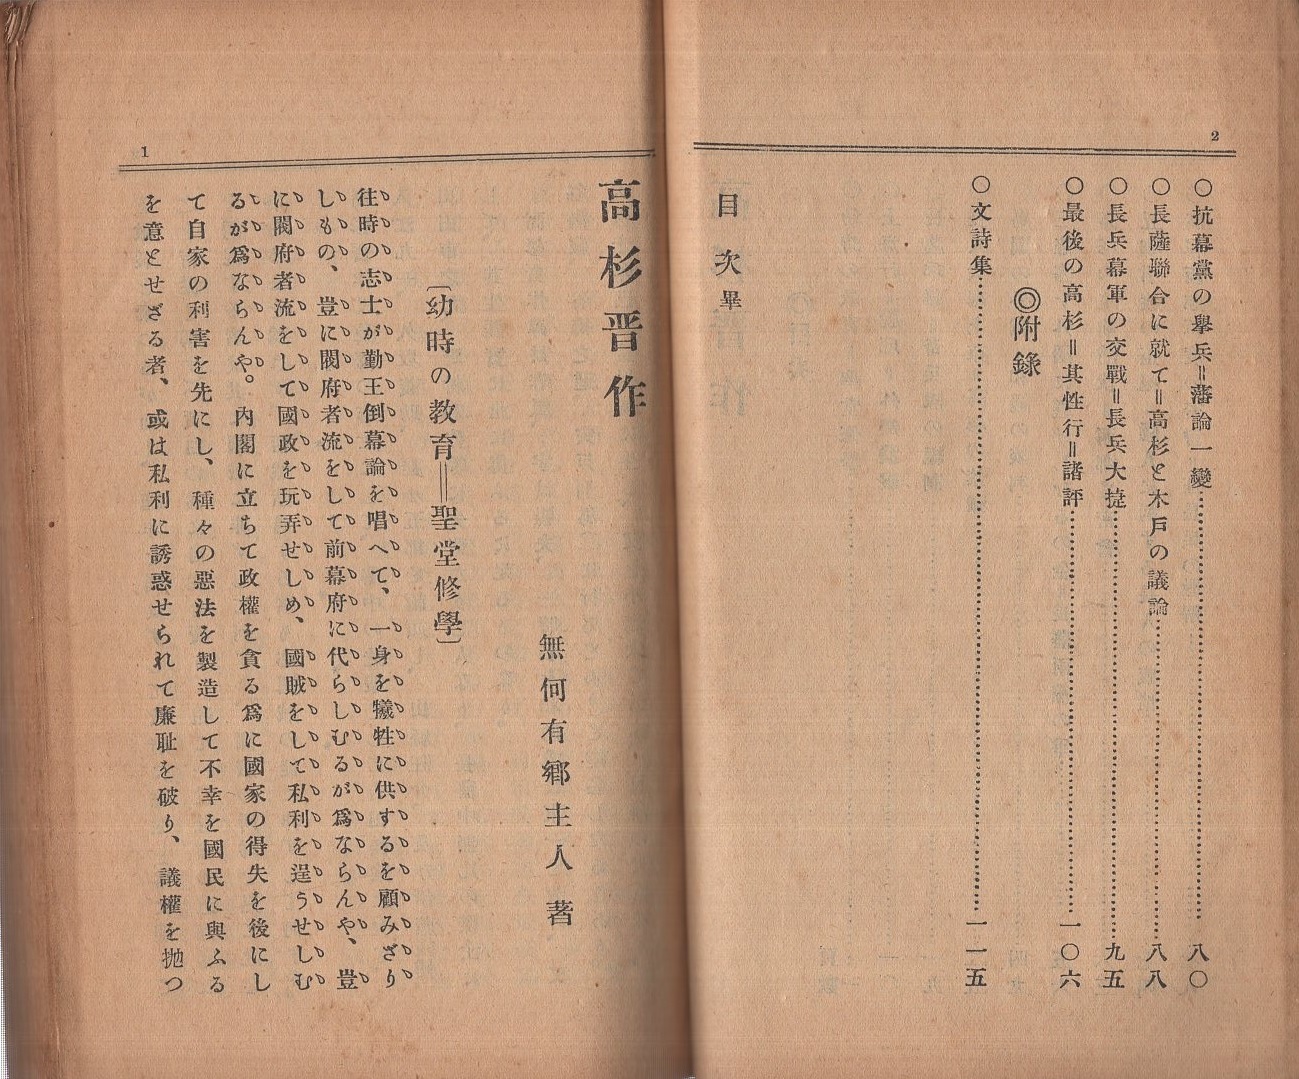 2
○抗幕黨の擧兵＝藩論一變………八〇
○長薩聯合に就て＝高杉と木戸の議論………八八
○長兵幕軍の交戰＝長兵大捷………九五
○最後の高杉＝其性行＝諸評………一〇六
◎附錄
○文詩集………一一五
目次畢
1
高杉晋作
無何有郷主人著
〔幼時の教育＝聖堂修學〕
往時の志士が勤王倒幕論を唱へて、一身を犧牲に供するを顧みざり
しもの、豈に閥府者流をして前幕府に代らしむるが爲ならんや、豈
に閥府者流をして國政を玩弄せしめ、國賊をして私利を逞うせしむ
るが爲ならんや。内閣に立ちて政權を貪る爲に國家の得失を後にし
て自家の利害を先にし、種々の惡法を製造して不幸を國民に與ふる
を意とせざる者、或は私利に誘惑せられて廉耻を破り、議權を抛つ